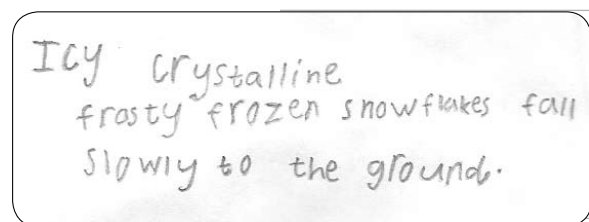 Icy crystalline
frosty frozen snowflakes fall
slowly to the ground.